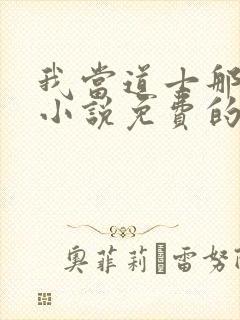 我當道士那
小說免費的
奧菲莉 雷努